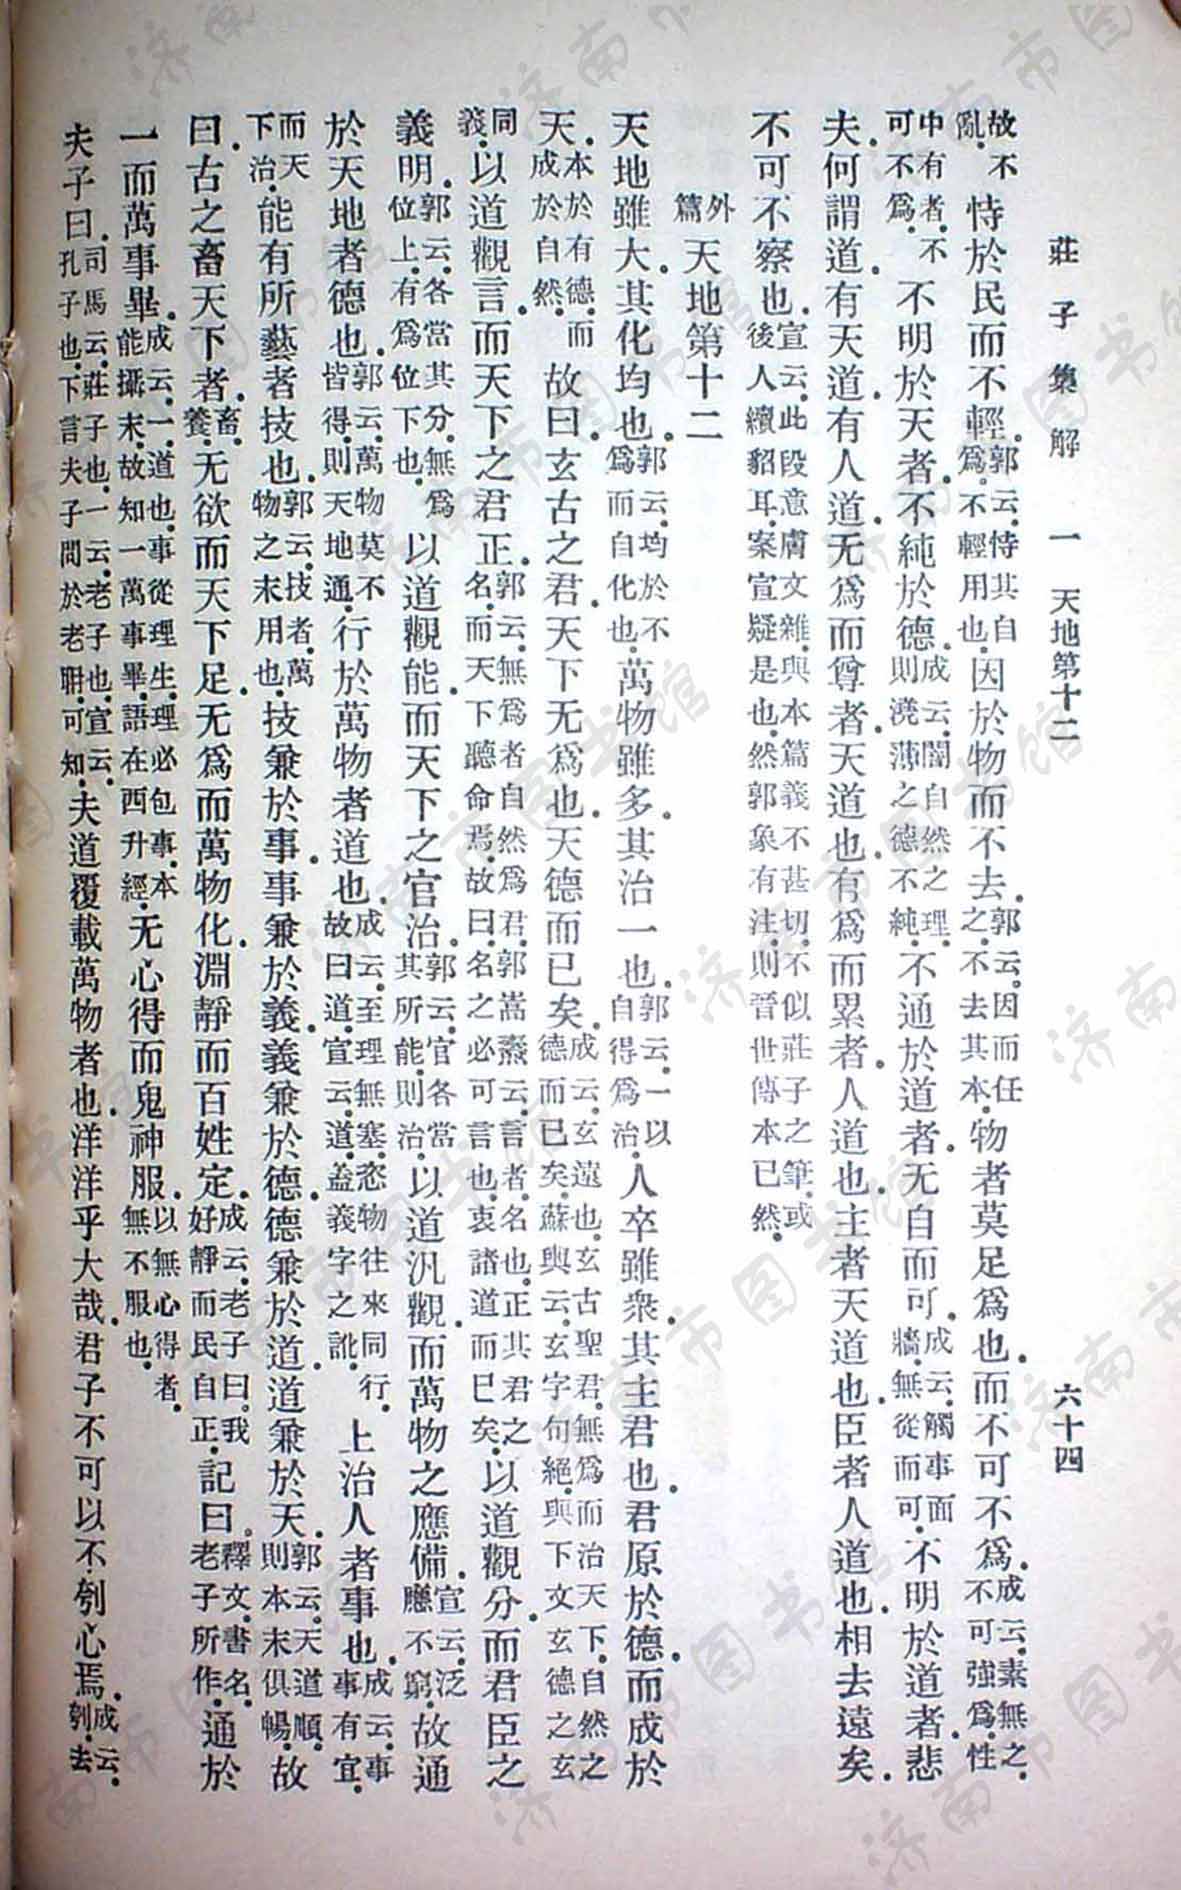 莊子集解 一 天地第十二 六十四
故不亂。恃於民而不輕。郭云。恃其自爲。不輕用也。因於物而不去。郭云。因而任之。不去其本。物者莫足爲也。而不可不爲。成云。素無之。不可強爲。性
中有者。不可不爲。不明於天者。不純於德。成云。闇自然之理。則澆薄之德不純。不通於道者。无自而可。成云。觸事面牆。無從而可。不明於道者。悲
夫。何謂道。有天道。有人道。无爲而尊者。天道也。有爲而累者。人道也。主者。天道也。臣者。人道也。相去遠矣。
不可不察也。宣云。此段意膚文雜。與本篇義不甚切。不似莊子之筆。或後人續貂耳。案宣疑是也。然郭象有注。則晉世傳本已然。
外篇 天地第十二
天地雖大。其化均也。郭云。均於不爲而自化也。萬物雖多。其治一也。郭云。一以自得爲治。人卒雖衆。其主君也。君原於德。而成於
天。本於有德。而成於自然。故曰。玄古之君。天下无爲也。天德而已矣。成云。玄遠也。玄古聖君。無爲而治天下。自然之德而已矣。蘇輿云。玄字句絕。與下文玄德之玄
同義。以道觀言。而天下之君正。郭云。無爲者自然爲君。郭嵩燾云。言者。名也。正其君之名。而天下聽命焉。故曰。名之必可言也。衷諸道而已矣。以道觀分。而君臣之
義明。郭云。各當其分。無爲位上。有爲位下也。以道觀能。而天下之官治。郭云。官各當其所能則治。以道汎觀。而萬物之應備。宣云。泛應不窮。故通
於天地者德也。郭云。萬物莫不皆得。則天地通。行於萬物者道也。成云。至理無塞。恣物往來同行。故曰道。宣云。道。蓋義字之訛。上治人者事也。成云。事事有宜。
而天下治。能有所藝者技也。郭云。技者。萬物之末用也。技兼於事。事兼於義。義兼於德。德兼於道。道兼於天。郭云。天道順。則本末俱暢。故
曰。古之畜天下者。畜。養。无欲而天下足。无爲而萬物化。淵靜而百姓定。成云。老子曰。我好靜而民自正。記曰。釋文。書名。老子所作。通於
一而萬事畢。成云。一。道也。事從理生。理必包事。本能攝末。故知一萬事畢。語在西升經。无心得而鬼神服。以無心得者。無不服也。
夫子曰。司馬云。莊子也。一云。老子也。宣云。孔子也。下言夫子問於老聃。可知。夫道覆載萬物者也。洋洋乎大哉。君子不可以不刳心焉。成云。刳。去。